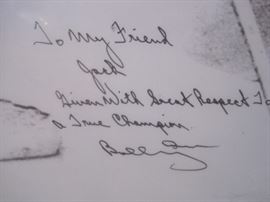 To My Friend
Jack
Given With Great Respect To
a True Champion